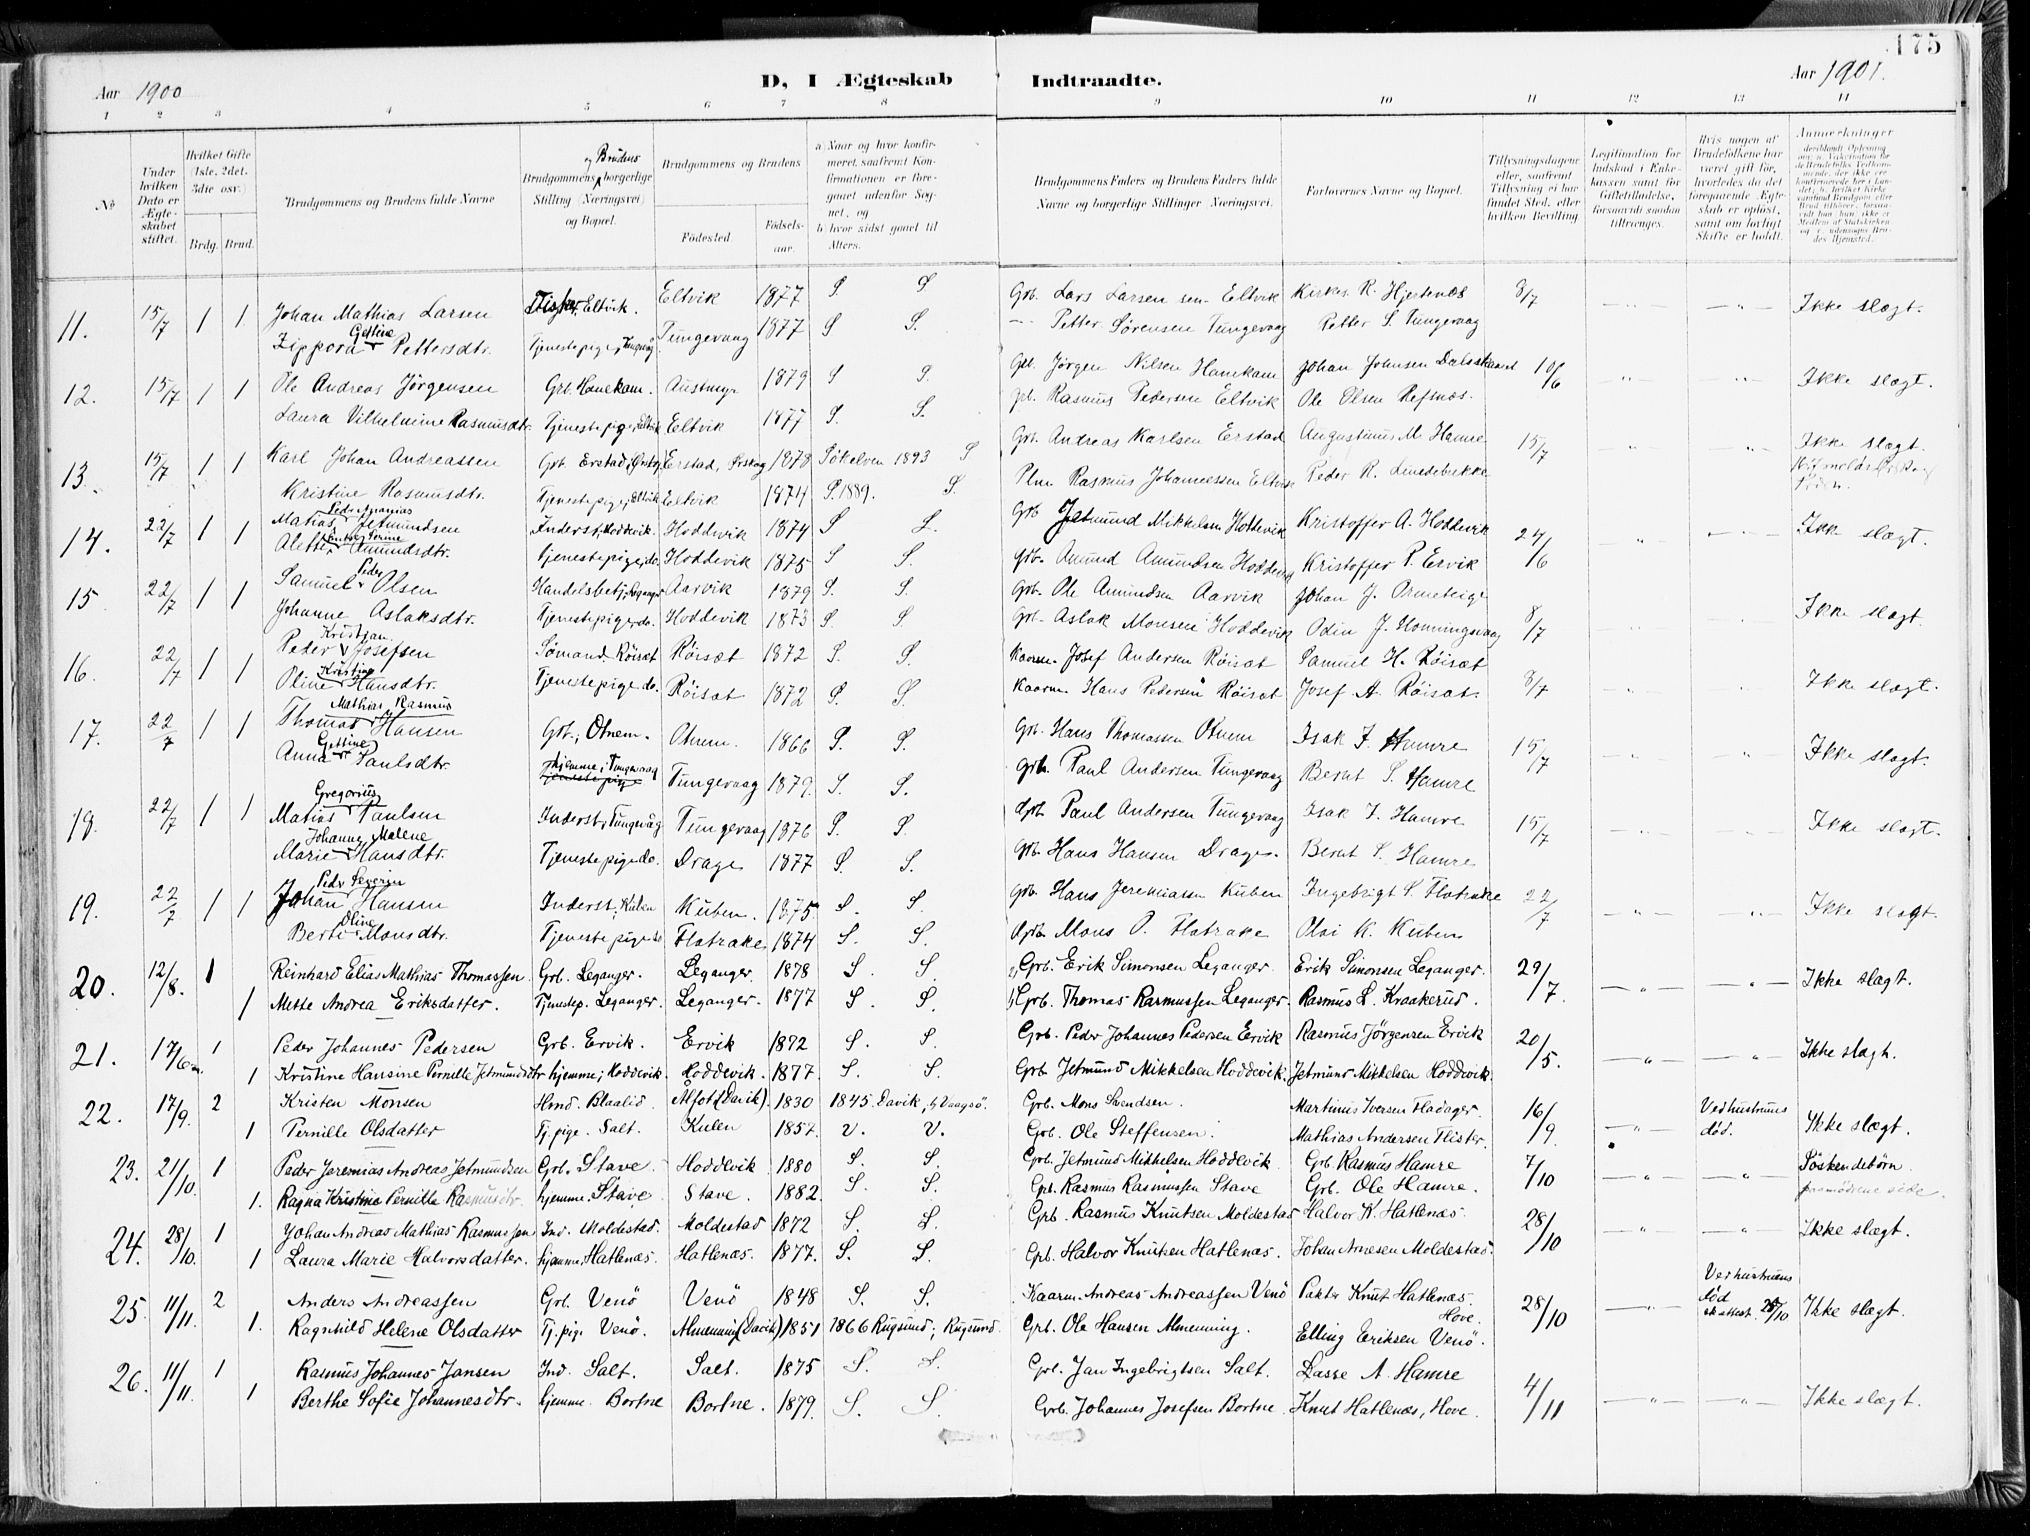 175
Aar 1900
D, I Ægteskab Indtraadte.
Aar 1901.
1 2 3 4 5 6 7 8 9 10 11 12 13 14
No
Under hvilken Dato er Ægteskabet stiftet.
Hvilket Gifte (1ste, 2det, 3die osv.)
Brdg. Brud.
Brudgommens og Brudens fulde Navne
Brudgommens og Brudens borgerlige Stilling (Næringsvei) og Bopæl.
Brudgommens og Brudens
Fødested. Fødselsaar.
a Naar og hvor konfirmeret, saafremt Konfirmationen er foregaaet udenfor Sognet, og
b hvor sidst gaaet til Alters.
Brudgommens Faders og Brudens Faders fulde Navne og borgerlige Stillinger (Næringsvei).
Forlovernes Navne og Bopæl.
Tillysningsdagene eller, saafremt Tillysning ei har fundet Sted, efter hvilken Bevilling.
Legitimation for Indskud i Enkekassen samt for Giftetilladelse, forsaavidt saadan tiltrænges.
Hvis nogen af Brudefolkene har været gift, hvorledes da det foregaaende Ægteskab er opløst, samt om lovligt Skifte er holdt.
Anmærkninger
11. 15/7 1 1 Johan Mathias Larsen Fisker, Eltvik. Eltvik 1877 S. S Grb. Lars Larsen sen. Eltvik Kirkes. R. Hjertenes 8/7 Ikke slægt.
Zippora Gettine Pettersdtr. Tjenestepige, Tungevåg Tungevaag 1877 S S. Petter Sørensen Tungevaag Petter S. Tungevaag
12. 15/7 1 1 Ole Andreas Jörgensen Grb. Hanekam. Austmyr 1879 S S. Grb. Jørgen Nilsen Hanekam Johan Johnsen 10/6 Ikke slægt.
Laura Vilhelmine Rasmusdtr. Tjenestepige, Eltvik Eltvik 1877 S. S. Grb. Rasmus Pedersen Eltvik Ole Olsen Refsnes.
13. 15/7 1 1 Karl Johan Andreassen Grb. Erstad, Erstad, Ørskog 1878 Søkelven 1893 S Grb. Andreas Karlsen Erstad Augustinus M. Hamre 15/7 Ikke slægt
Kristine Rasmusdtr. Tjenestepige, Eltvik Eltvik 1874 S. 1889. S. Plm Rasmus Johannessen Eltvik Peder R.
14. 22/7 1 1 Matias Peder Ananias Jetmundsen Inderst, Hoddevik. Hoddevik 1874 S S. Grb Jetmund Mikkelsen Hoddevik Kristoffer A. Hoddevik 24/6 Ikke slægt.
Alette Serine Amundsdtr. Tjenestepige, do. Hoddevik 1875 S S. Grb. Amund Amundsen Hoddevik Kristoffer P. Ervik
15 22/7 1 1 Samuel Peder Olsen Handelsbetj. Leganger Aarvik 1879 S. S. Grb. Ole Amundsen Aarvik Johan J. Ormeteig 8/7 Ikke slægt
Johanne Aslaksdtr. Tjenestepige, do. Hoddevik 1873 S. S. Grb. Aslak Monsen Hoddevik Odin J. Honningsvaag
16. 22/7 1 1 Peder Kristian Josefsen Sømand, Röiset Röisæt 1872 S. S. Kaarm. Josef Andersen Röisæt Samuel H. Röisæt 8/7 Ikke slægt.
Oline Kristine Hansdtr. Tjenestepige do. Röisæt 1872 S. S. Kaarm. Hans Pedersen Röisæt Josef A. Röisæt.
17. 22/7 1 1 Thomas Mathias Rasmus Hansen Grb., Otnem. Otnem. 1866 S. S. Grb. Hans Thomassen Otnem Isak J. Hamre 15/7 Ikke slægt.
Anna Gettine Paulsdtr. Hjemme; Tungevaag Tjenestepige Tungevaag 1879. S. S. Grb. Paul Andersen Tungevaag Bernt S. Hamre
18. 22/7 1 1 Matias Gregorius Paulsen Inderst, Tungevåg Tungevaag 1876 S. S. Grb. Paul Andersen Tungevaag Isak J. Hamre 15/7 Ikke slægt.
Marie Johanne Malene Hansdtr. Tjenestepige do. Drage 1877 S. S. Grb. Hans Hansen Drage. Bernt S. Hamre
19. 22/7 1 1 Johan Peder Severin Hansen Inderst, Kuben Kuben. 1875. S. S. Grb. Hans Jeremiassen Kuben Ingebrigt S. Flatrake 22/7 Ikke slægt.
Berte Oline Monsdtr. Tjenestepige do Flatrake 1874 S. S. Grb. Mons O. Flatrake Olai K. Kuben
20. 12/8. 1 Reinhard Elias Mathias Thomassen. Grb. Leganger. Leganger. 1878 S. S. 2) Grb. Erik Simonsen Leganger. Erik Simonsen Leganger. 29/7. Ikke slægt.
1 Mette Andrea Eriksdatter. Tjenestep. Leganger. Leganger. 1877 S. S. 1) Grb. Thomas Rasmussen Leganger. Rasmus L. Kraakerud.
21. 17/6 1 Peder Johannes Pedersen Grb. Ervik. Ervik 1872 S. S. Grb. Peder Johannes Pedersen Ervik Rasmus Jörgensen Ervik 20/5. Ikke slægt.
1 Kristine Hansine Pernille Jetmundsdtr hjemme, Hoddevik. Hoddevik. 1877. S. S. Grb. Jetmund Mikkelsen Hoddevik. Jetmund Mikkelsen Hoddevik.
22. 17/9. 2 Kristen Monsen Hmd. Blaalid. Ålfot (Davik). 1830 1845. Davik, b) Vaagsö. Grb. Mons Svendsen. Martinus Iversen Fladager. 16/9 Ved hustruens død. Ikke slægt.
1 Pernille Olsdatter Tj. pige. Salt. Kulen 1857. v. v. Grb. Ole Steffensen. Mathias Andersen Flister.
23. 21/10. 1 Peder Jeremias Andreas Jetmundsen Grb. Stave. Hoddevik 1880 S. S. Grb. Jetmund Mikkelsen Hoddevik Grb. Rasmus Hamre 7/10 Söskendebörn
1. Ragna Kristine Pernille Rasmusdtr. hjemme. Stave. Stave. 1882. S. S. Grb. Rasmus Rasmussen Stave Grb. Ole Hamre. paa mödrene side.
24. 28/10. 1 Johan Andreas Mathias Rasmussen Ind. Moldestad. Moldestad 1872 S. S. Grb. Rasmus Knutsen Moldestad Halvor K. Hatlenæs. 28/10 Ikke slægt.
1 Laura Marie Halvorsdatter. hjemme. Hatlenæs. Hatlenæs. 1877. S. S. Grb. Halvor Knutsen Hatlenæs. Johan Arnesen Moldestad.
25. 11/11. 2 Anders Andreassen Grb. Venö Venö 1848 S. S. Kaarm. Andreas Andreassen Venö Paktr Knut Hatlenæs. Hove. 28/10 Ved hustruens död skattest. 25/10 Ikke slægt.
1. Ragnhild Helene Olsdatter Tj. pig. Venö. Almenning (Davik) 1851 1866 Rugsund; Rugsund. Grb. Ole Hansen Almenning. Elling Eriksen Venö.
26. 11/11. 1 Rasmus Johannes Jansen Ind. Salt. Salt. 1875 S. S. Grb. Jan Ingebrigtsen Salt. Lasse A. Hamre 4/11 Ikke slægt.
1 Berthe Sofie Johannesdtr. hjemme. Bortne Bortne. 1879. S. S. Grb. Johannes Josefsen Bortne. Knut Hatlenæs, Hove.